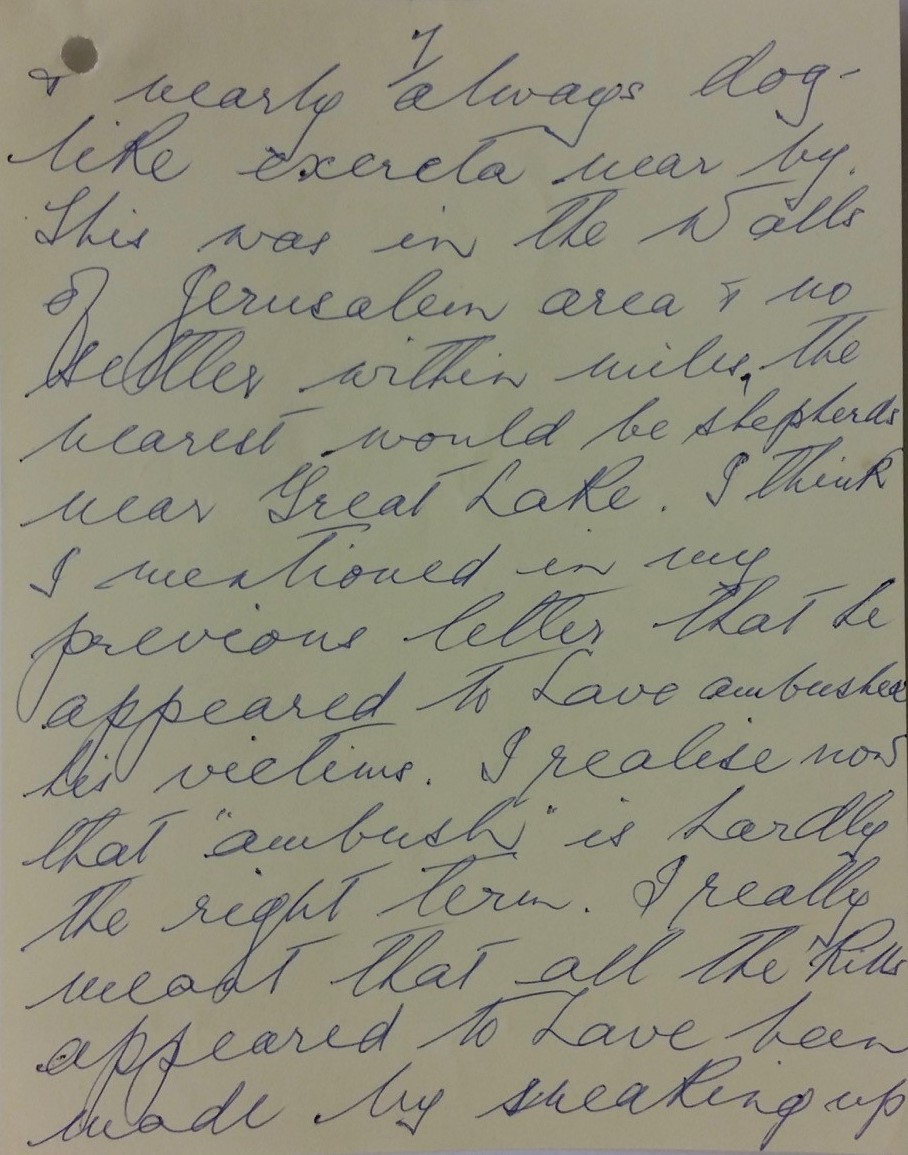 7
& nearly always dog-
like excreta near by.
This was in the Walls
of Jerusalem area & no
settler within miles, the
nearest would be shepherds
near Great Lake. I think
I mentioned in my
previous letter that he
appeared to have ambushed
his victims. I realise now
that "ambush" is hardly
the right term. I really
meant that all the kills
appeared to have been
made by sneaking up